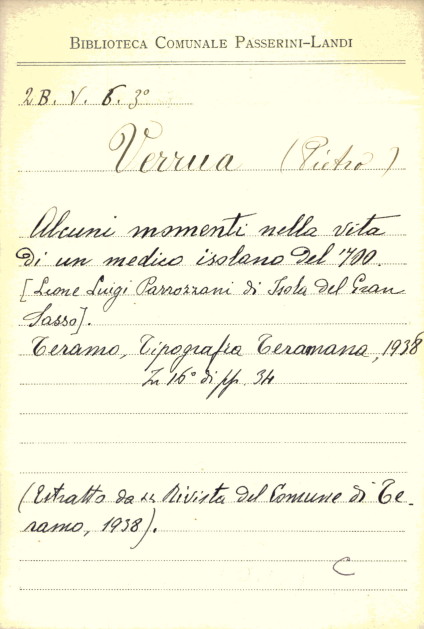 BIBLIOTECA COMUNALE PASSERINI-LANDI
2B. V. 6. 3°
Verrua (Pietro)
Alcuni momenti nella vita
di un medico isolano del '700.
[Leone Luigi Parrozzani di Isola del Gran
Sasso].
Teramo, Tipografia Teramana, 1938
In 16° di pp. 34
(Estratto da Rivista del Comune di Te-
ramo, 1938).
C